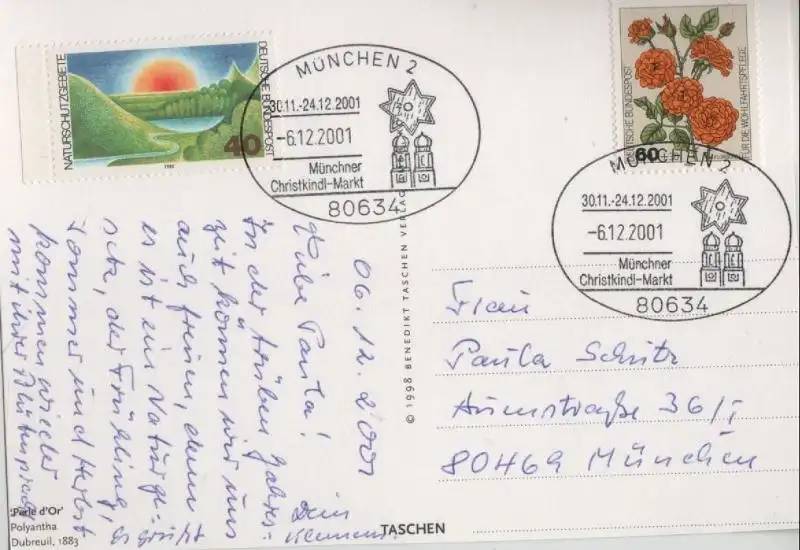 NATURSCHUTZGEBIETE
DEUTSCHE BUNDESPOST
40
1980
MÜNCHEN 2
30.11.-24.12.2001
-6.12.2001
Münchner
Christkindl-Markt
80634
DEUTSCHE BUNDESPOST
60
FÜR DIE WOHLFAHRTSPFLEGE
MÜNCHEN 2
30.11.-24.12.2001
-6.12.2001
Münchner
Christkindl-Markt
80634
06.12.2001
Liebe Paula!
In der trüben Jahres-
zeit können wir uns
auch freuen, denn
es ist ein Naturge-
setz, der Frühling, der
Sommer und Herbst
kommen wieder
mit ihrer Blütenpracht
Dein
© 1998 BENEDIKT TASCHEN VERLAG
Frau
Paula Schütz
36/I
80469 München
'Perle d'Or'
Polyantha
Dubreuil, 1883
TASCHEN